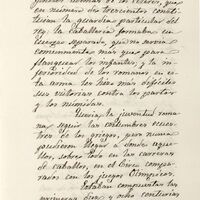 número de trescientos consti-
tuían la guardia particular del
rey: la caballería formaba en
cuerpo separado, que no servía
comunmente más que para
flanquear los infantes, y la in-
ferioridad de los romanos en es-
ta arma les hizo más difíciles
sus victorias contra los partos
y los númidas.
Quería la juventud roma-
na seguir las costumbres ecues-
tres de los griegos, pero nunca
pudieron llegar a donde aque-
llos, sobre todo en las carreras
de caballos, en el Circo compa-
radas con los juegos Olímpicos.
Estaban compuestas las
primeras dos y ocho centurias